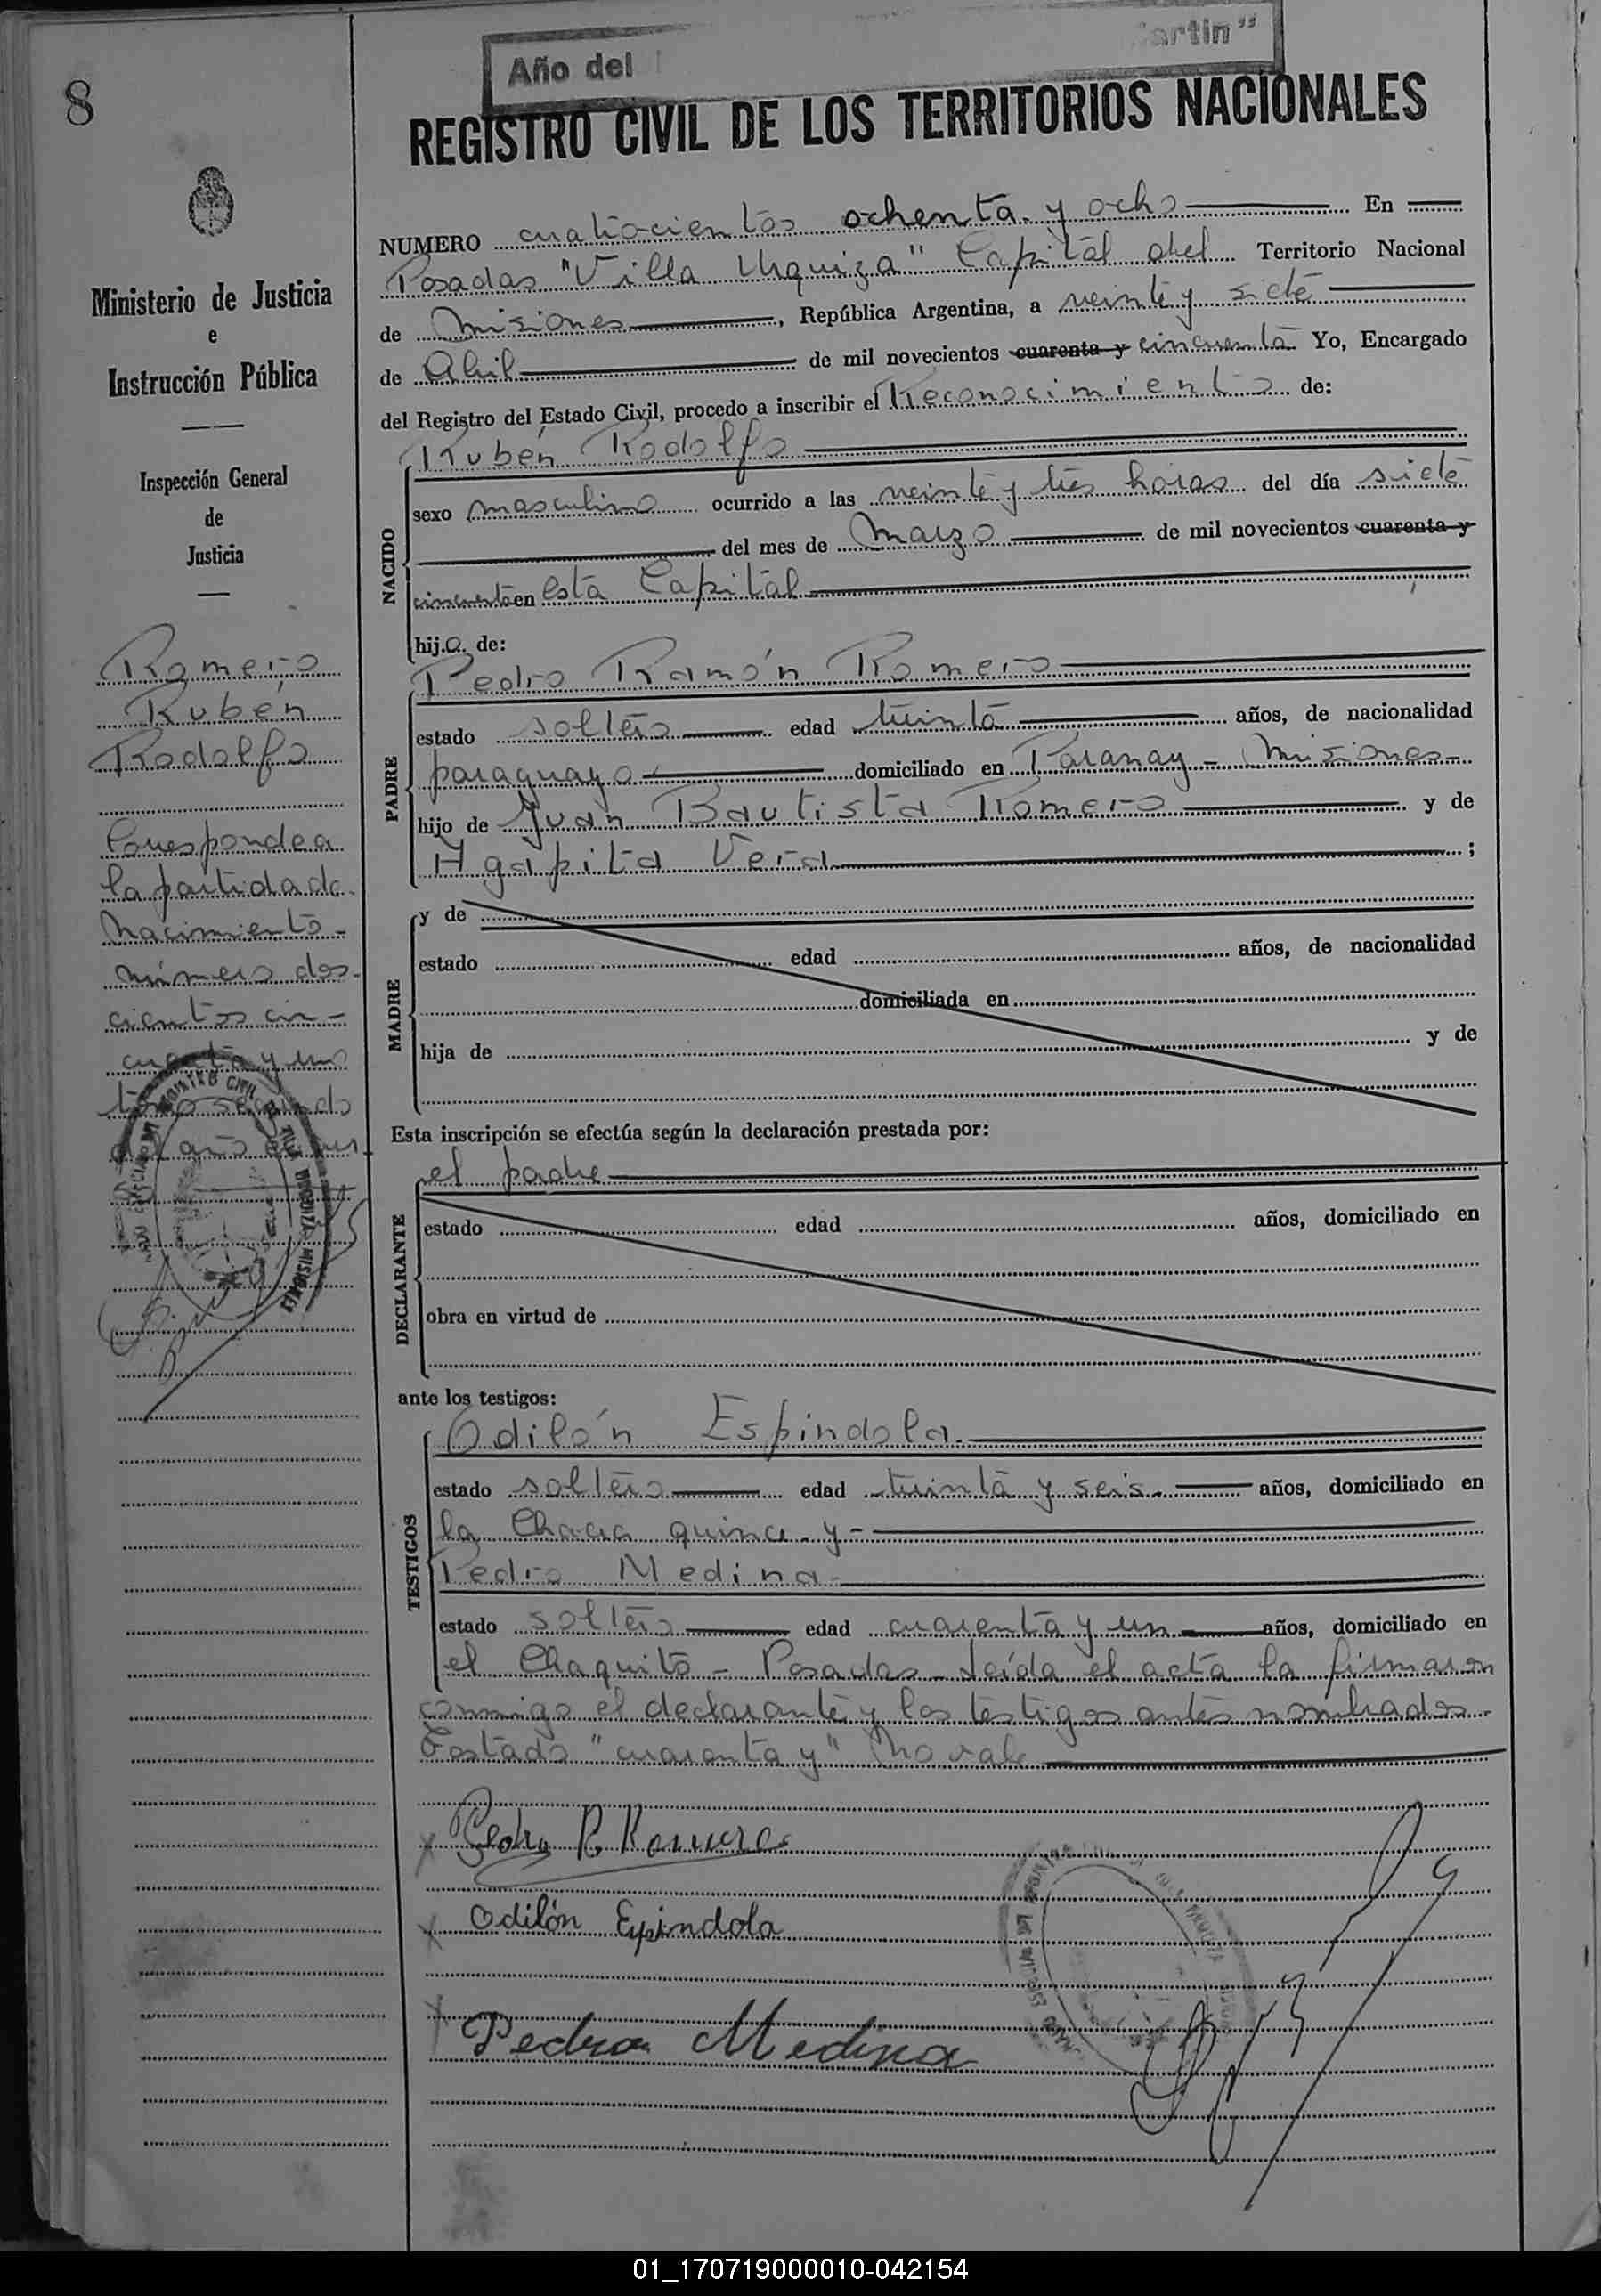 Año del artin"
8
REGISTRO CIVIL DE LOS TERRITORIOS NACIONALES
NUMERO cuatrocientos ochenta y ocho En
Posadas "Villa Urquiza" Capital del Territorio Nacional
de Misiones, República Argentina, a veinte y siete
de Abril de mil novecientos cuarenta y cincuenta Yo, Encargado
del Registro del Estado Civil, procedo a inscribir el Reconocimiento de:
Ministerio de Justicia
e
Instrucción Pública
Inspección General
de
Justicia
Romero
Rubén
Rodolfo
Corresponde a
la partida de
Nacimiento
número dos-
cientos cin-
cuenta y uno
tomo segundo
del año en cur-
so
NACIDO
Rubén Rodolfo
sexo masculino ocurrido a las veinte y tres horas del día siete
del mes de Marzo de mil novecientos cuarenta y
cincuenta en esta Capital
hijo. de:
PADRE
Pedro Ramón Romero
estado soltero edad treinta años, de nacionalidad
paraguayo domiciliado en Paranay - Misiones-
hijo de Juan Bautista Romero y de
Agapita Vera ;
MADRE
y de
estado edad años, de nacionalidad
domiciliada en
hija de y de
Esta inscripción se efectúa según la declaración prestada por:
DECLARANTE
el padre
estado edad años, domiciliado en
obra en virtud de
ante los testigos:
TESTIGOS
Odilón Espindola
estado soltero edad treinta y seis años, domiciliado en
la Chacra quince y-
Pedro Medina
estado soltero edad cuarenta y un años, domiciliado en
el Chaquito - Posadas - Leída el acta la firmaron
conmigo el declarante y los testigos antes nombrados.
Testado "cuarenta y" No vale
x Pedro R. Romero
x Odilón Espindola
x Pedro Medina
01_170719000010-042154